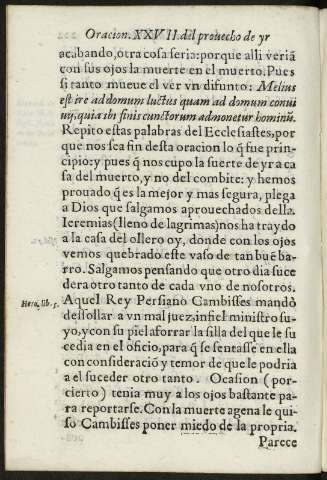 Oracion. XXVII. del prouecho de yr
acabando, otra cosa seria: porque alli veriã
con sus ojos la muerte en el muerto. Pues
si tanto mueue el ver vn difunto: Melius
est ire ad domum luctus quam ad domum conui
uij, quia ibi finis cunctorum admonetur hominũ.
Repito estas palabras del Ecclesiastes, por
que nos sea fin desta oracion lo q̃ fue prin-
cipio: y pues q̃ nos cupo la suerte de yr a ca
sa del muerto, y no del combite: y hemos
prouado q̃ es la mejor y mas segura, plega
a Dios que salgamos aprouechados della.
Ieremias (lleno de lagrimas) nos ha traydo
a la casa del ollero oy, donde con los ojos
vemos quebrado este vaso de tan buẽ ba-
rro. Salgamos pensando que otro dia suce
dera otro tanto de cada vno de nosotros.
Hero. lib. 5. Aquel Rey Persiano Cambisses mandò
dessollar a vn mal juez, infiel ministro su-
yo, y con su piel aforrar la silla del que le su
cedia en el oficio, para q̃ se sentasse en ella
con consideraciõ y temor de que le podria
a el suceder otro tanto. Ocasion (por-
cierto) tenia muy a los ojos bastante pa-
ra reportarse. Con la muerte agena le qui-
so Cambisses poner miedo de la propria.
Parece